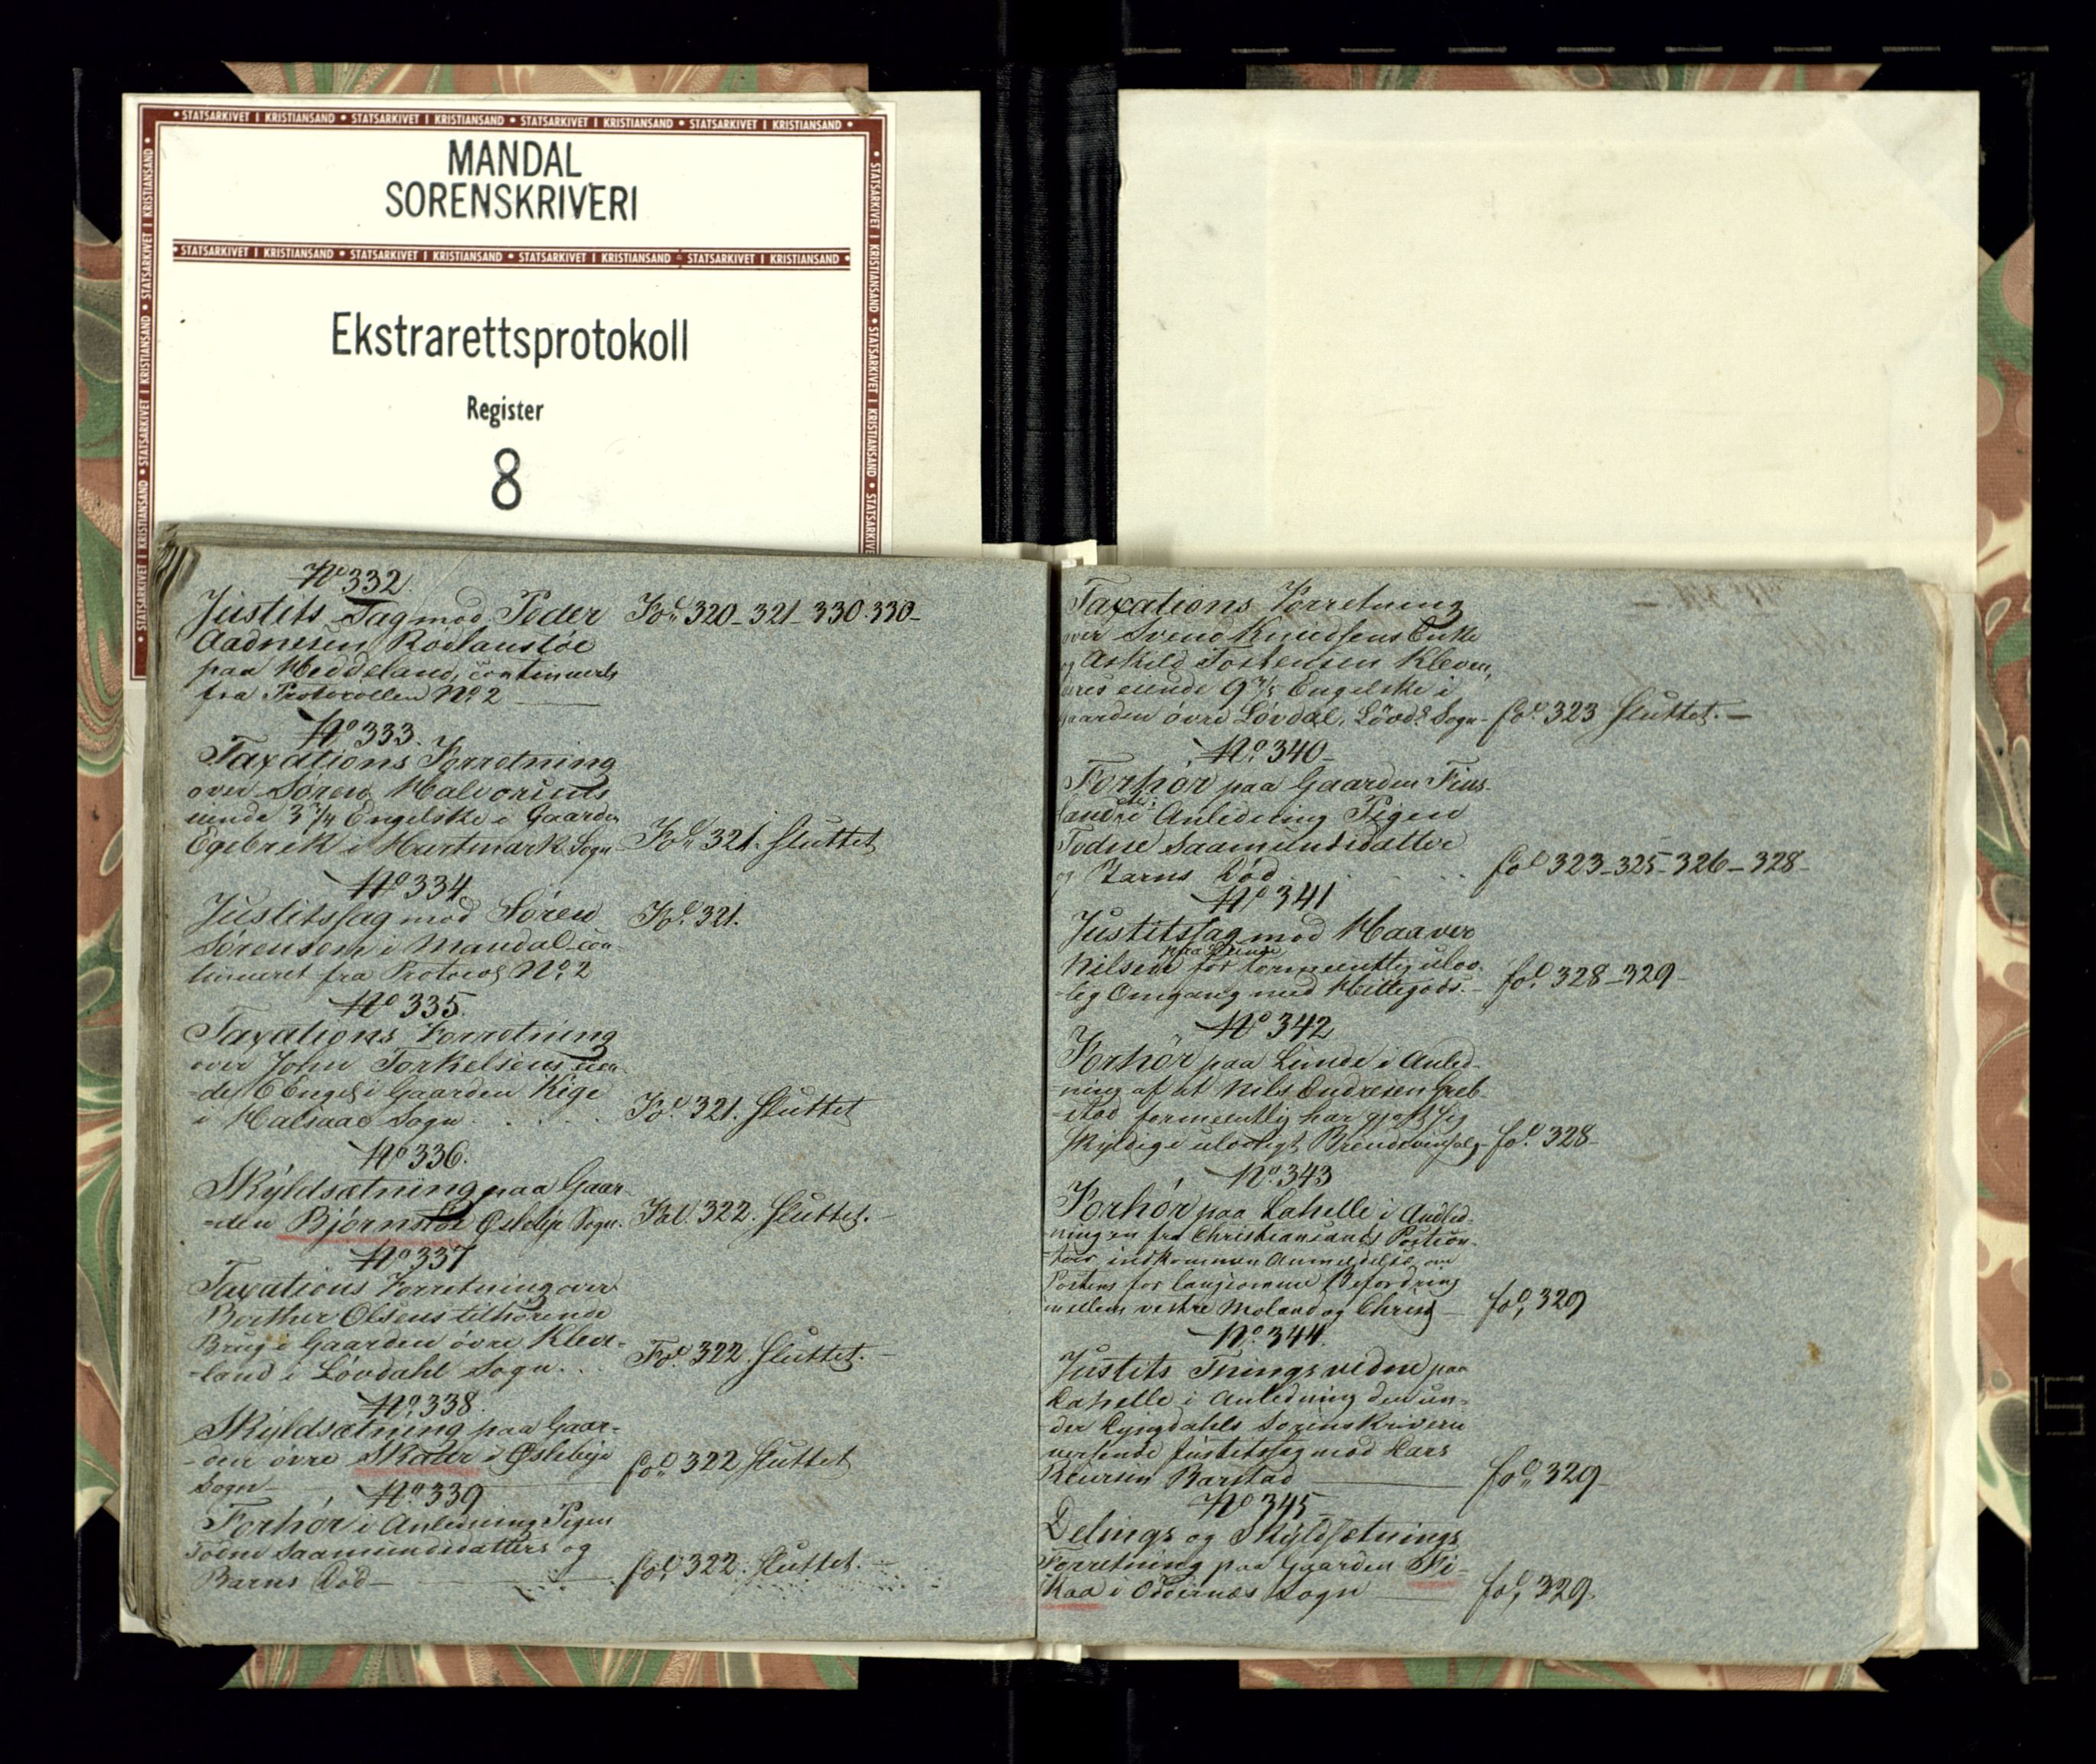 STATSARKIVET I KRISTIANSAND • STATSARKIVET I KRISTIANSAND • STATSARKIVET I KRISTIANSAND • STATSARKIVET I KRISTIANSAND
MANDAL
SORENSKRIVERI
STATSARKIVET I KRISTIANSAND • STATSARKIVET I KRISTIANSAND • STATSARKIVET I KRISTIANSAND • STATSARKIVET I KRISTIANSAND
Ekstrarettsprotokoll
Register
8
No 332.
Justits Sag mod Peder Fol: 320-321-330.330-
Aadnesen Rødlausløe
paa Heddeland, continueret
fra Protocollen No 2
No 333.
Taxations Forretning
over Søren Halvorsens
eiende 3 3/4 Engelske i Gaarden
Egebræk i Hartmark Sogn Fol: 321. Sluttet
No 334
Justitssag mod Søren Fol. 321.
Sørensen i Mandal con-
tinueret fra Protocol No 2
No 335.
Taxations Forretning
over John Torkelsens eien-
-de 6 Engel: i Gaarden Kige
i Halsaae Sogn . . . . Fol 321. Sluttet
No 336.
Skyldsætning paa Gaar-
-den Bjørnstøl Øslebye Sogn. Fol. 322. Sluttet.
No 337
Taxations Forretning over
Berther Olsens tilhørende
Brug i Gaarden øvre Kleve-
-land i Løvdahl Sogn. . . Fol. 322. Sluttet. -
No. 338.
Skyldsætning paa Gaar-
-den øvre Skaaer i Øslebye
Sogn fol: 322 Sluttet
No. 339
Forhør i Anledning Pigen
Todne Saamundsdatters og
Barns Død - fol: 322. Sluttet. -
Taxations Forretning
over Svend Knudsens Enke
og Askild Tostensen Kleven,
deres eiende 9 3/5 Engelske i
Gaarden øvre Løvdal, Løvd: Sogn - fol. 323 Sluttet. -
No. 340-
Forhør paa Gaarden Fins-
land i Anledning Pigen
Todne Saamundsdatter
og Barns Død . . . fol 323-325-326-328-
No 341
Justitssag mod Haaver
Nilsen for formeentlig ulov-
-lig Omgang med Hittegods. - fol. 328-329-
No 342
Forhør paa Lunde i Anled-
-ning af at Nils Endresen Greb-
-stad formeentlig har gjort sig
skyldig i ulovligt Brændeviinssalg fol. 328-
No. 343
Forhør paa Lahelle i Andled-
ning en fra Christiansands Postcon-
-toir indkommen Anmeldelse om
Postens for langsomme Befordring
mellem vestre Moland og Christ fol. 329
No. 344.
Justits Tingsvidne paa
Lahelle i Anledning den un-
-der Lyngdahls Sorenskriveri
verserende Justitssag mod Lars
Barstad fol: 329-
No 345
Delings og Skyldsætnings
Forretning paa Gaarden Ki-
kaa i Oddernæs Sogn fol. 329.